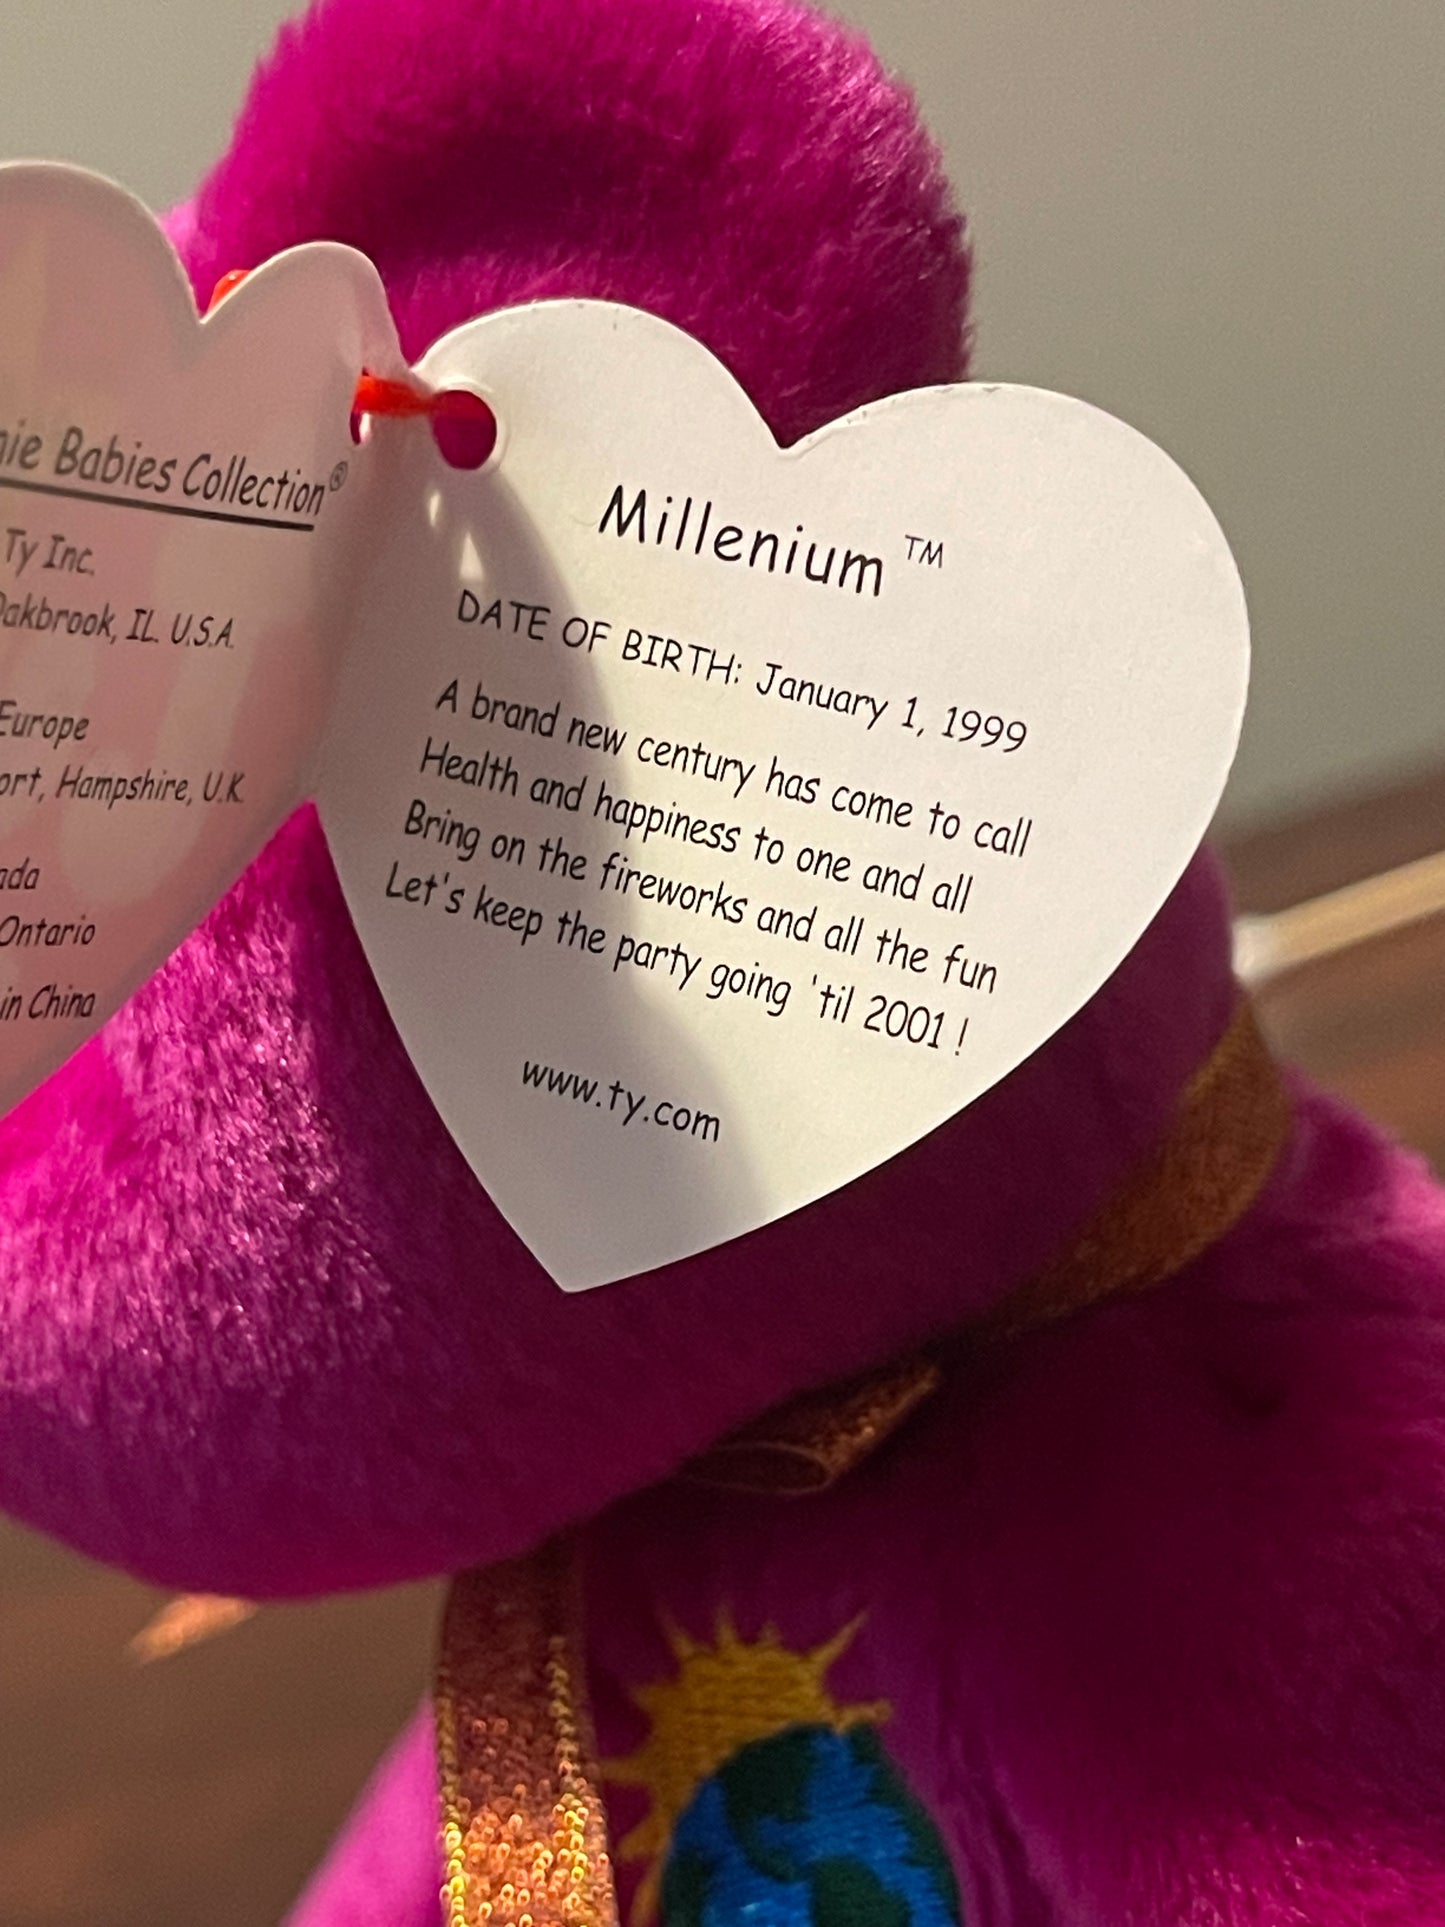 Babies Collection®
Ty Inc.
Oakbrook, IL. U.S.A.
Europe
Hampshire, U.K.
Ontario
in China
Millenium™
DATE OF BIRTH: January 1, 1999
A brand new century has come to call
Health and happiness to one and all
Bring on the fireworks and all the fun
Let's keep the party going 'til 2001 !
www.ty.com